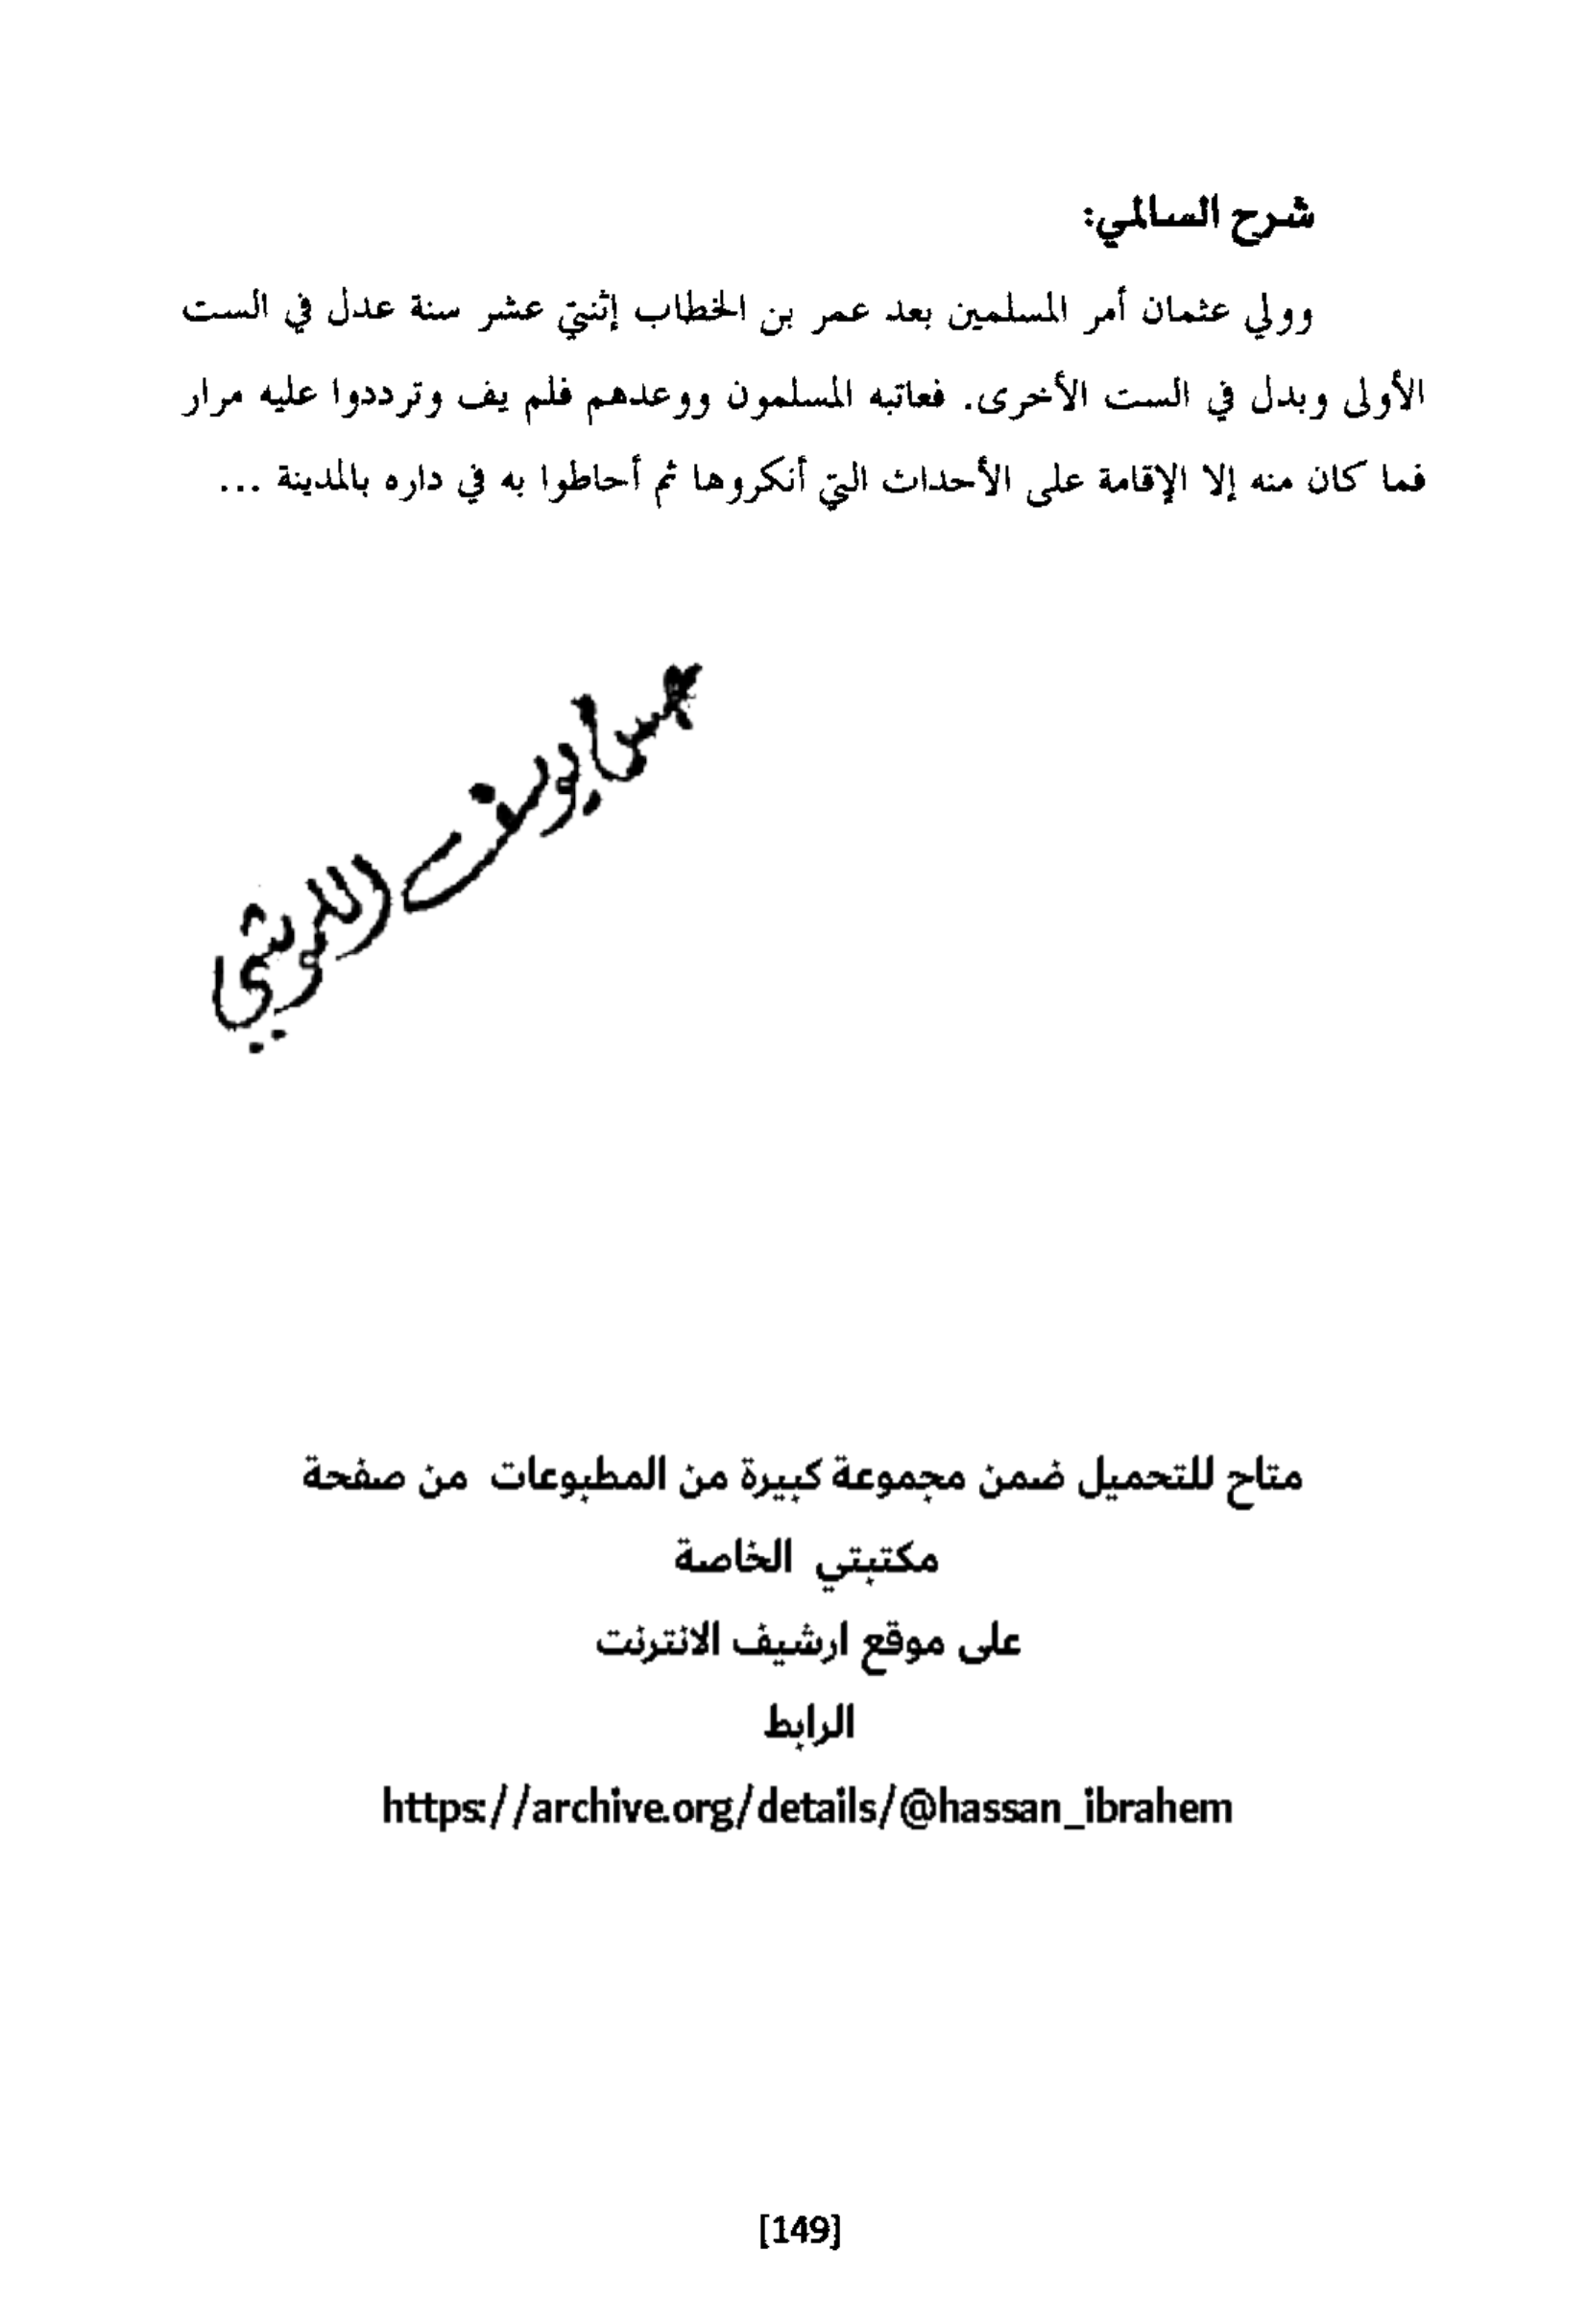 شرح السالمي:
وولي عثمان أمر المسلمين بعد عمر بن الخطاب إثنتي عشر سنة عدل في الست
الأولى وبدل في الست الأخرى. فعاتبه المسلمون ووعدهم فلم يف وترددوا عليه مرار
فما كان منه إلا الإقامة على الأحداث التي أنكروها ثم أحاطوا به في داره بالمدينة ...
يوسف
متاح للتحميل ضمن مجموعة كبيرة من المطبوعات من صفحة
مكتبتي الخاصة
على موقع ارشيف الانترنت
الرابط
https://archive.org/details/@hassan_ibrahem
[149]